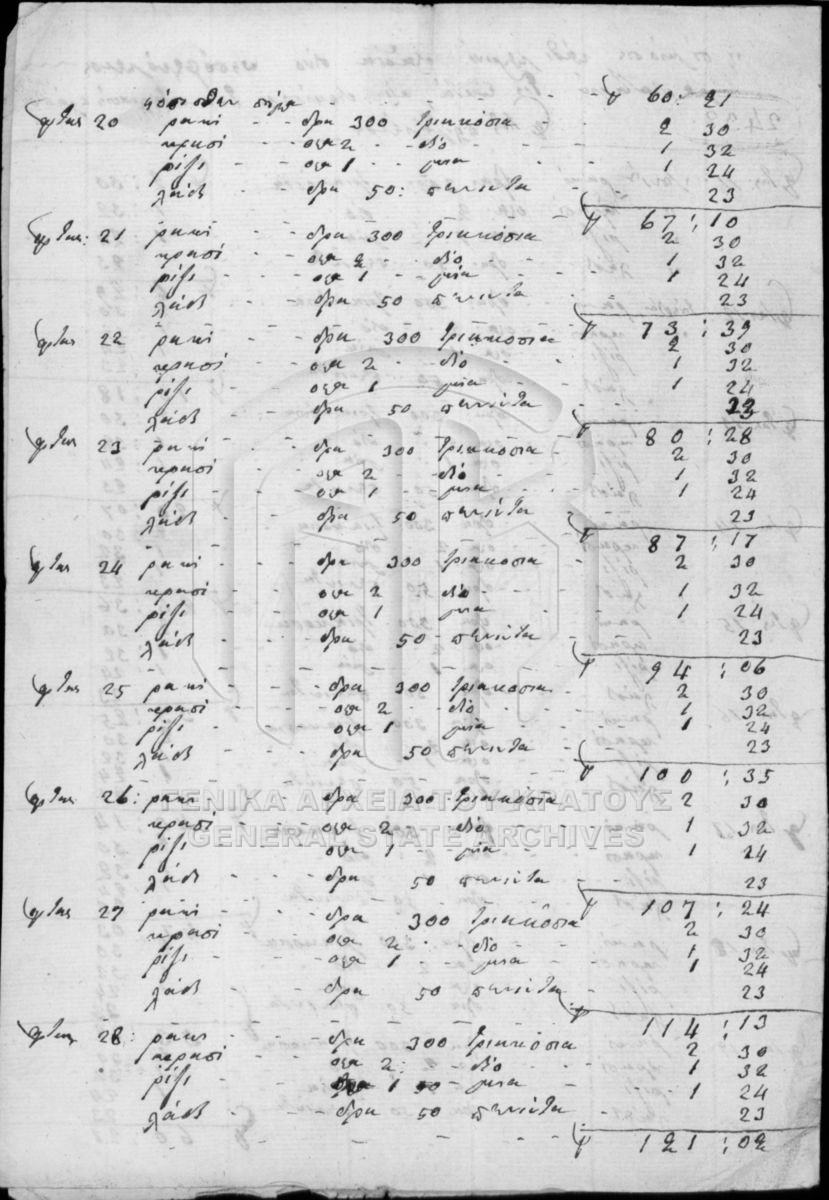 60: 21
20 ρακί - - δρα 300 τριακόσια - - 2 30
κρασί - - οκα 2 - - δίο - - 1 32
ρίζι - - οκα 1 - - μια - - 1 24
λάδι - - δρα 50: πενίντα - - 23
67 : 10
21 ρακί - - δρα 300 τριακόσια - - 2 30
κρασί - - οκα 2 - - δίο - - 1 32
ρίζι - - οκα 1 - - μία - - 1 24
λάδι - - δρα 50 πενίντα - - 23
73 : 39
22 ρακί - - δρα 300 τριακόσια - - 2 30
κρασί - - οκα 2 - δίο - - 1 32
ρίζι - - οκα 1 - μια - - 1 24
λάδι - - δρα 50 πενίντα - - 23
80 : 28
23 ρακί - - δρα 300 τριακόσια - - 2 30
κρασί - - οκα 2 - δίο - - 1 32
ρίζι - - οκα 1 - μια - - 1 24
λάδι - - δρα 50 πενίντα - - 23
87 : 17
24 ρακί - - δρα 300 τριακόσια - - 2 30
κρασί - - οκα 2 δίο - - 1 32
ρίζι - - οκα 1 μια - - 1 24
λάδι - - δρα 50 - πενίντα - - 23
94 : 06
25 ρακί - - δρα 300 τριακόσια - - 2 30
κρασί - - οκα 2 - δίο - - 1 32
ρίζι - - οκα 1 - μια - - 1 24
λάδι - - δρα 50 πενίντα - - 23
100 : 35
26: ρακί - - δρα 300 τριακόσια - - 2 30
ΓΕΝΙΚΑ ΑΡΧΕΙΑ ΤΟΥ ΚΡΑΤΟΥΣ
κρασί - - οκα 2 - δίο - - 1 32
GENERAL STATE ARCHIVES
ρίζι - - οκα 1 - μία - - 1 24
λάδι - - δρα 50 πενίντα - - 23
107 : 24
27 ρακί - - δρα 300 τριακόσια - - 2 30
κρασί - - οκα 2 - - δίο - - 1 32
ρίζι - - οκα 1 - - μια - - 1 24
λάδι - - δρα 50 πενίντα - - 23
114 : 13
28: ρακί - - δρα 300 τριακόσια - - 2 30
κρασί - - οκα 2: - δίο - - 1 32
ρίζι - - 1 μια - - 1 24
λάδι - - δρα 50 πενίντα - - 23
121 : 02